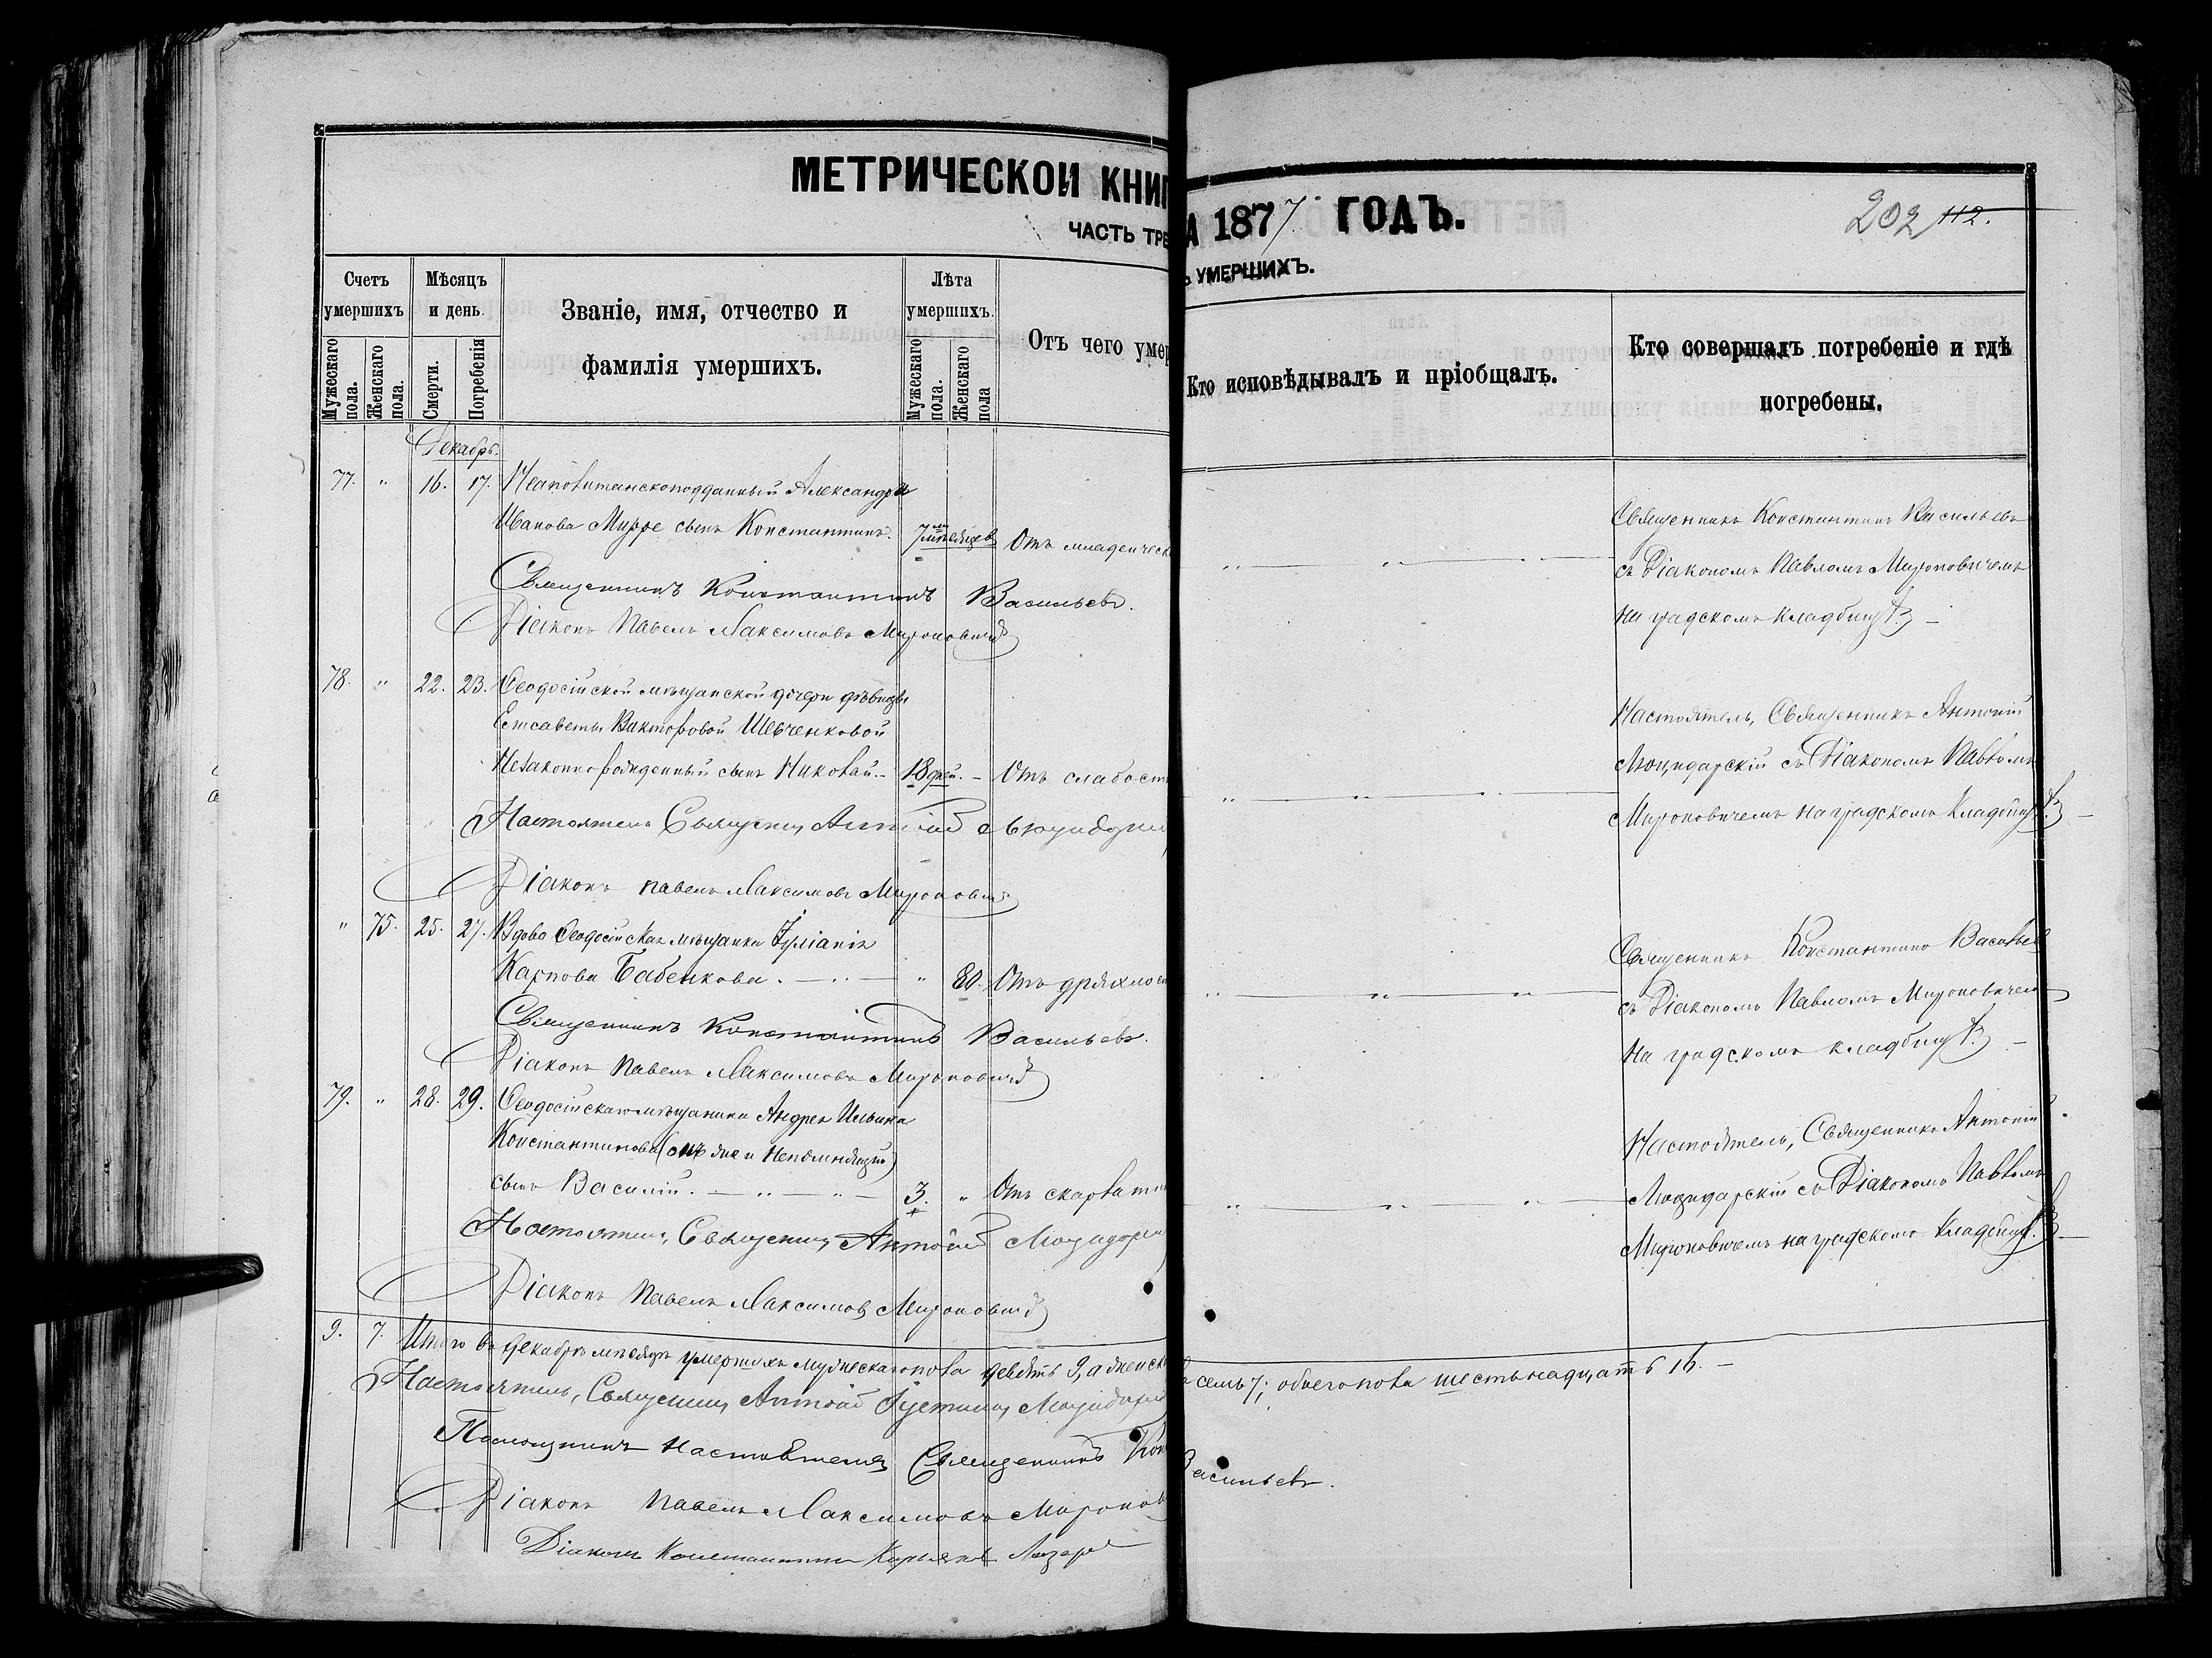 МЕТРИЧЕСКОЙ КНИГ
А 1877 ГОДЪ.
202 112.
ЧАСТЬ ТРЕ
Ъ УМЕРШИХЪ.
Счетъ умершихъ
Мужескаго пола.
Женскаго пола.
Мѣсяцъ и день.
Смерти.
Погребенія
Званіе, имя, отчество и
фамилія умершихъ.
Лѣта умершихъ.
Мужескаго пола.
Женскаго пола
Отъ чего умер
Кто исповѣдывалъ и пріобщалъ.
Кто совершалъ погребеніе и гдѣ
погребены.
Декабрь.
77. " 16. 17. Неаполитанскоподданный Александра
Иванова Мирре сынъ Константинъ. 7 мѣсяцев Отъ младенческ
Священникъ Константинъ Васильевъ
съ Діакономъ Павломъ Мироновичемъ
на градскомъ кладбищѣ.
Священникъ Константинъ Васильевъ.
Діаконъ Павелъ Максимовъ Мироновичъ
78. " 22. 23. Ѳеодосійской мѣщанской дочери дѣвицы
Елисаветы Викторовой Шевченковой
Незаконнорожденный сынъ Николай. 18 дней. Отъ слабост
Настоятель, Священникъ Антоній
Люцидарскій съ Діакономъ Павломъ
Мироновичемъ на градскомъ кладбищѣ.
Настоятель Священникъ Антоній Люцидарск
Діаконъ Павелъ Максимовъ Мироновичъ
" 75. 25. 27. Вдова Ѳеодосійская мѣщанка Іуліанія
Карпова Бабенкова. " 80. Отъ дряхлос
Священникъ Константинъ Васильев
съ Діакономъ Павломъ Мироновичем
на градскомъ кладбищѣ.
Священникъ Константинъ Васильевъ.
Діаконъ Павелъ Максимовъ Мироновичъ
79. " 28. 29. Ѳеодосійскаго мѣщанина Андрея Ильина
Константинова (онъ же и Непомнящій)
сынъ Василій. 3. " Отъ скарлатин
Настоятель, Священникъ Антоній
Люцидарскій съ Діакономъ Павломъ
Мироновичемъ на градскомъ кладбищѣ.
Настоятель, Священникъ Антоній Люцидарск
Діаконъ Павелъ Максимовъ Мироновичъ
9. 7. Итого въ декабрѣ мѣсяцѣ умершихъ мужескаго пола девять 9, а женск
а семь 7; обоего пола шестьнадцать 16.
Настоятель, Священникъ Антоній Іустиновъ Люцидарск
Помощникъ Настоятеля Священникъ Кон
Васильевъ.
Діаконъ Павелъ Максимовъ Миронов
Діаконъ Константинъ Лазаре